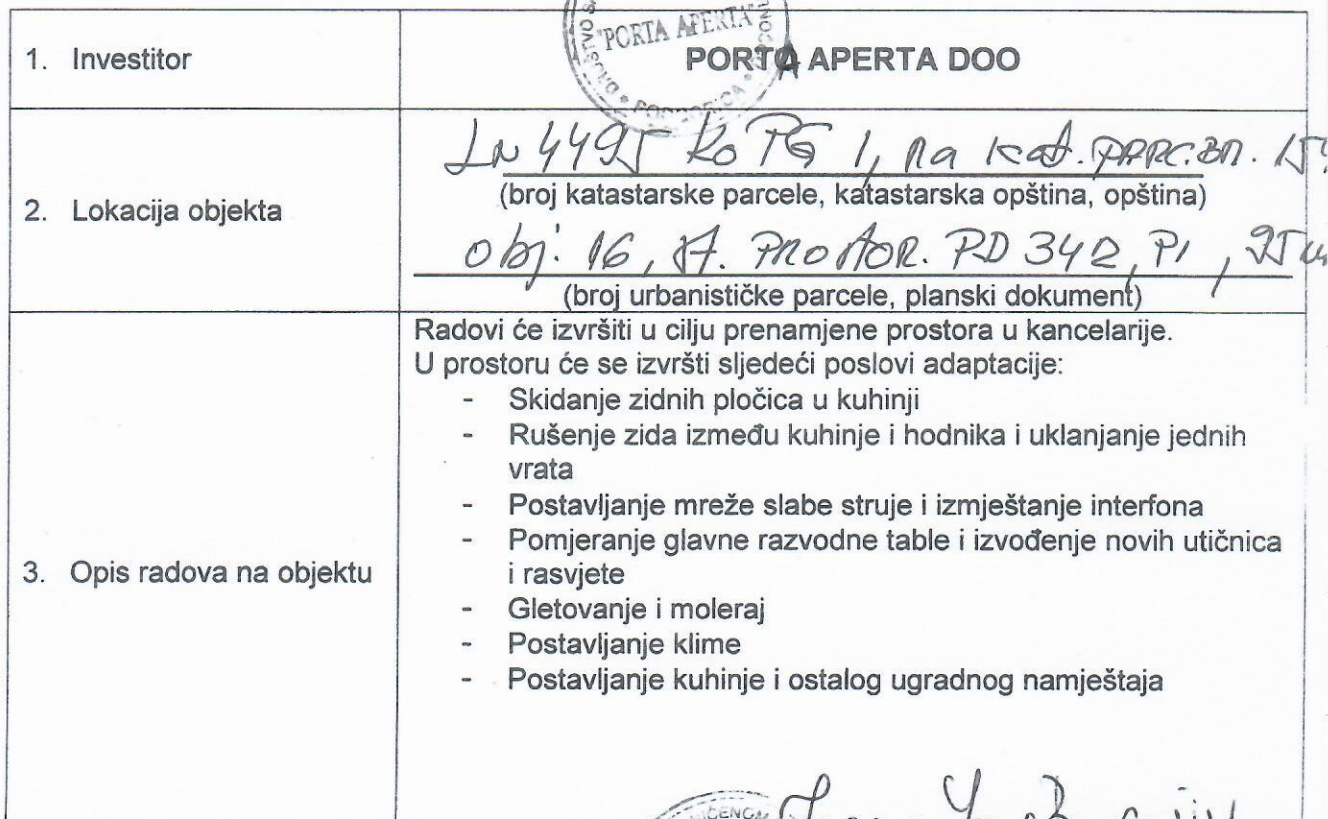 "PORTA APERTA"
1. Investitor
PORTA APERTA DOO
2. Lokacija objekta
LN 4495 KO PG 1, na kat. PARC. BR.
(broj katastarske parcele, katastarska opština, opština)
obj. 16, st. PROSTOR. PD 342, P1, 25
(broj urbanističke parcele, planski dokument)
3. Opis radova na objektu
Radovi će izvršiti u cilju prenamjene prostora u kancelarije.
U prostoru će se izvršti sljedeći poslovi adaptacije:
- Skidanje zidnih pločica u kuhinji
- Rušenje zida između kuhinje i hodnika i uklanjanje jednih
vrata
- Postavljanje mreže slabe struje i izmještanje interfona
- Pomjeranje glavne razvodne table i izvođenje novih utičnica
i rasvjete
- Gletovanje i moleraj
- Postavljanje klime
- Postavljanje kuhinje i ostalog ugradnog namještaja